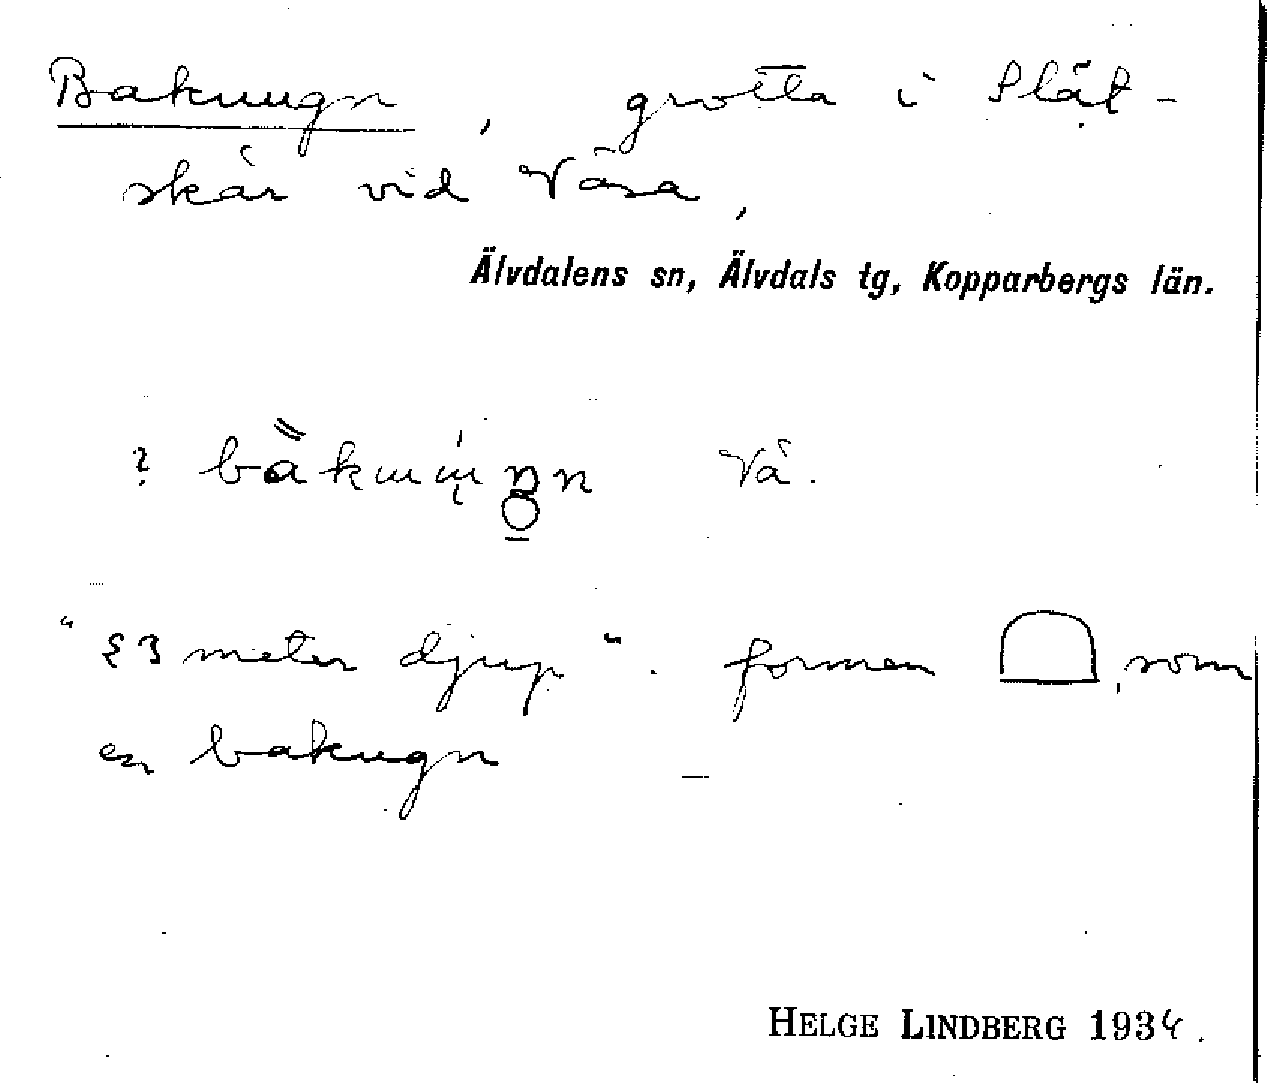 Bakungn, grotta i Slät-
skär vid Våsa,
Älvdalens sn, Älvdals tg, Kopparbergs län.
? Vå.
"23 meter djup". formen , som
en bakugn —
HELGE LINDBERG 1934.